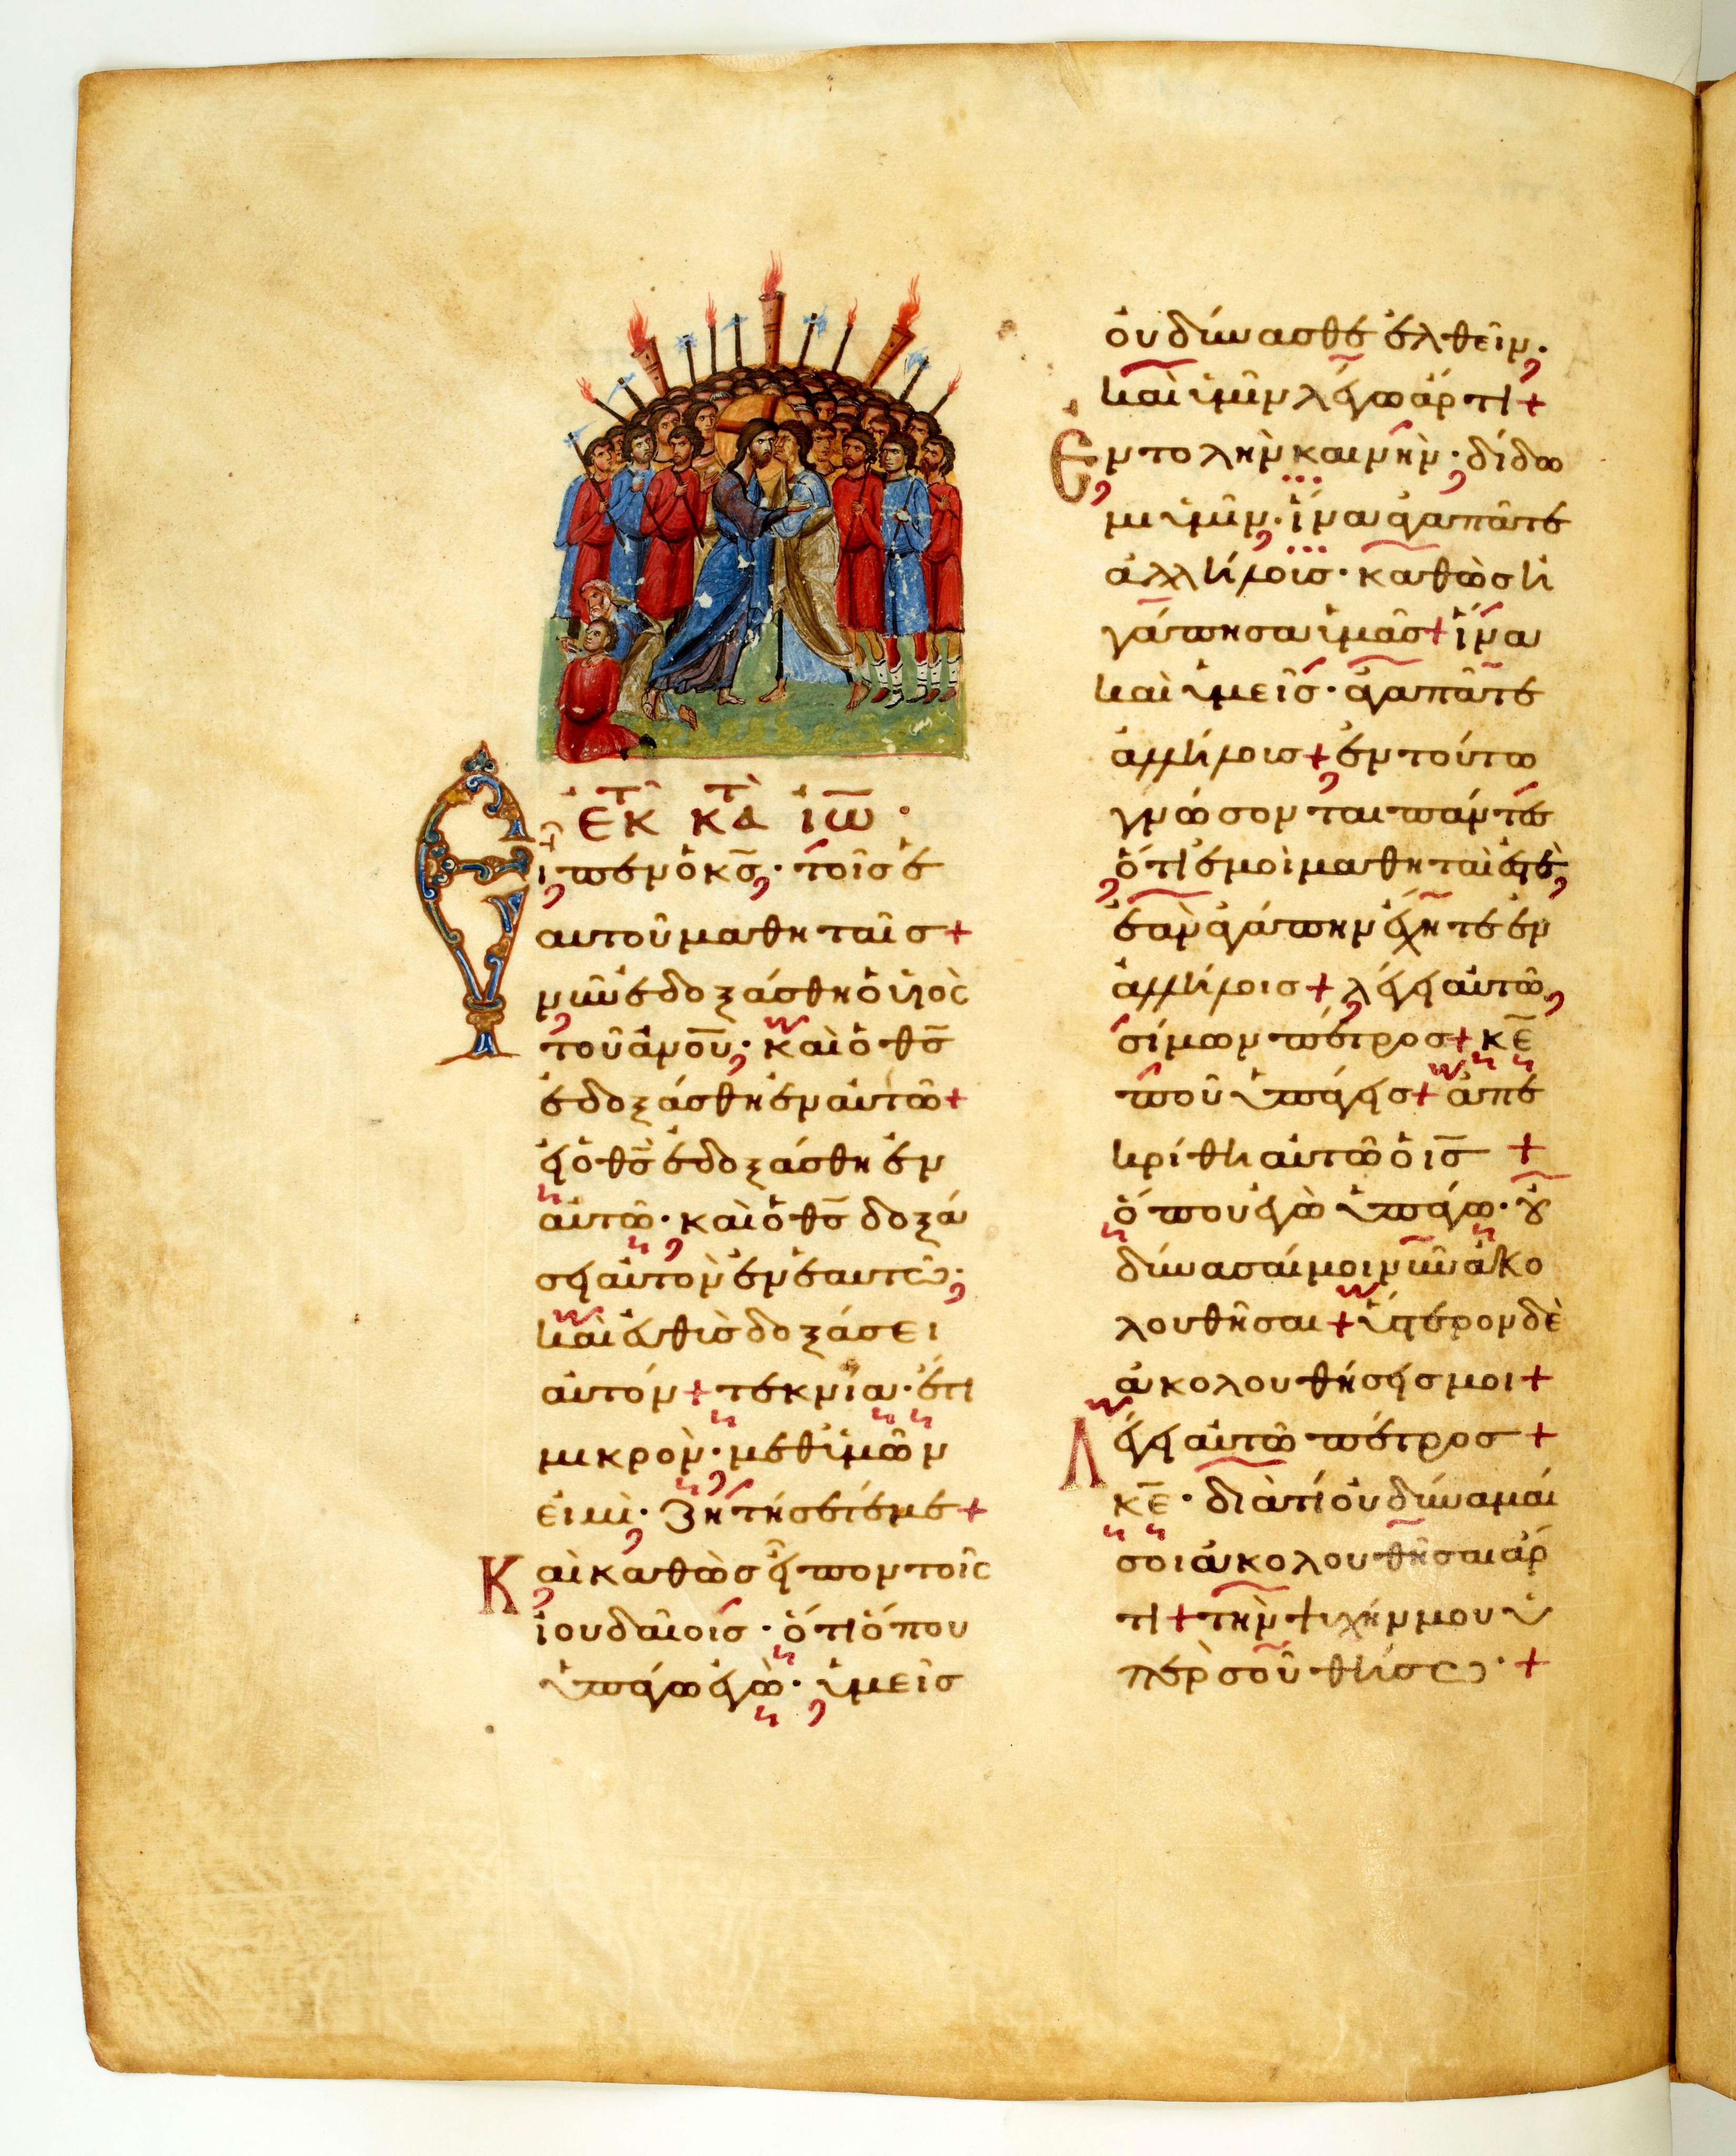 ἐκ τοῦ κατὰ ἰω̅
Εἶπεν ὁ κ̅ς̅· τοῖς ἑ
αυτοῦ μαθηταῖς +
νῦν ἐδοξάσθη ὁ υἱὸς
τοῦ ἀν̅ο̅υ̅· καὶ ὁ θ̅ς̅
ἐδοξάσθη ἐν αὐτῶ +
εἰ ὁ θ̅ς̅ ἐδοξάσθη ἐν
αὐτῶ· καὶ ὁ θ̅ς̅ δοξά
σει αὐτὸν ἐν ἑαυτῶ·
καὶ εὐθὺς δοξάσει
αὐτόν + τεκνία· ἔτι
μικρὸν· μεθ ὑμῶν
εἰμὶ· ζητήσετέ με +
Καὶ καθὼς εἶπον τοῖς
ἰουδαίοις· ὅτι ὅπου
ὑπάγω ἐγὼ· ὑμεῖς
οὐ δύνασθε ἐλθεῖν·
καὶ ὑμῖν λέγω ἄρτι +
Ἐντολὴν καινὴν· δίδω
μι ὑμῖν· ἵνα ἀγαπᾶτε
ἀλλήλοις· καθὼς ἠ
γάπησα ὑμᾶς + ἵνα
καὶ ὑμεῖς· ἀγαπᾶτε
ἀλλήλοις + ἐν τούτω
γνώσονται πάντες
ὅτι ἐμοὶ μαθηταὶ ἐστὲ,
ἐὰν ἀγάπην ἔχητε ἐν
ἀλλήλοις + λέγει αὐτῶ,
σίμων πέτρος + κ̅ε̅
ποῦ ὑπάγεις + ἀπε
κρίθη αὐτῶ ὁ ι̅ς̅ +
ὅπου ἐγὼ ὑπάγω· οὐ
δύνασαί μοι νῦν ἀκο
λουθῆσαι + ὕστερον δὲ
ἀκολουθήσεις μοι +
Λέγει αὐτῶ πέτρος +
κ̅ε̅· διὰ τί οὐ δύναμαί
σοι ἀκολουθῆσαι ἄρ
τι + τὴν ψυχήν μου ὑ
πὲρ σοῦ θήσω· +